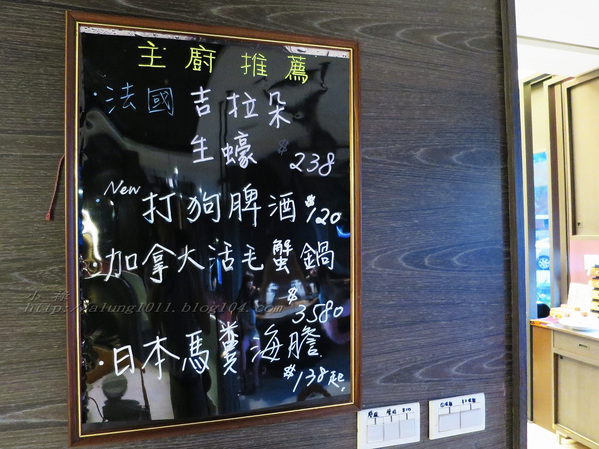 主廚推薦
·法國 吉拉朵
生蠔 $238
New 打狗脾酒 $120
·加拿大活毛蟹鍋
$3580
·日本馬糞海膽
$138起
http://alung1011.blog104.com/